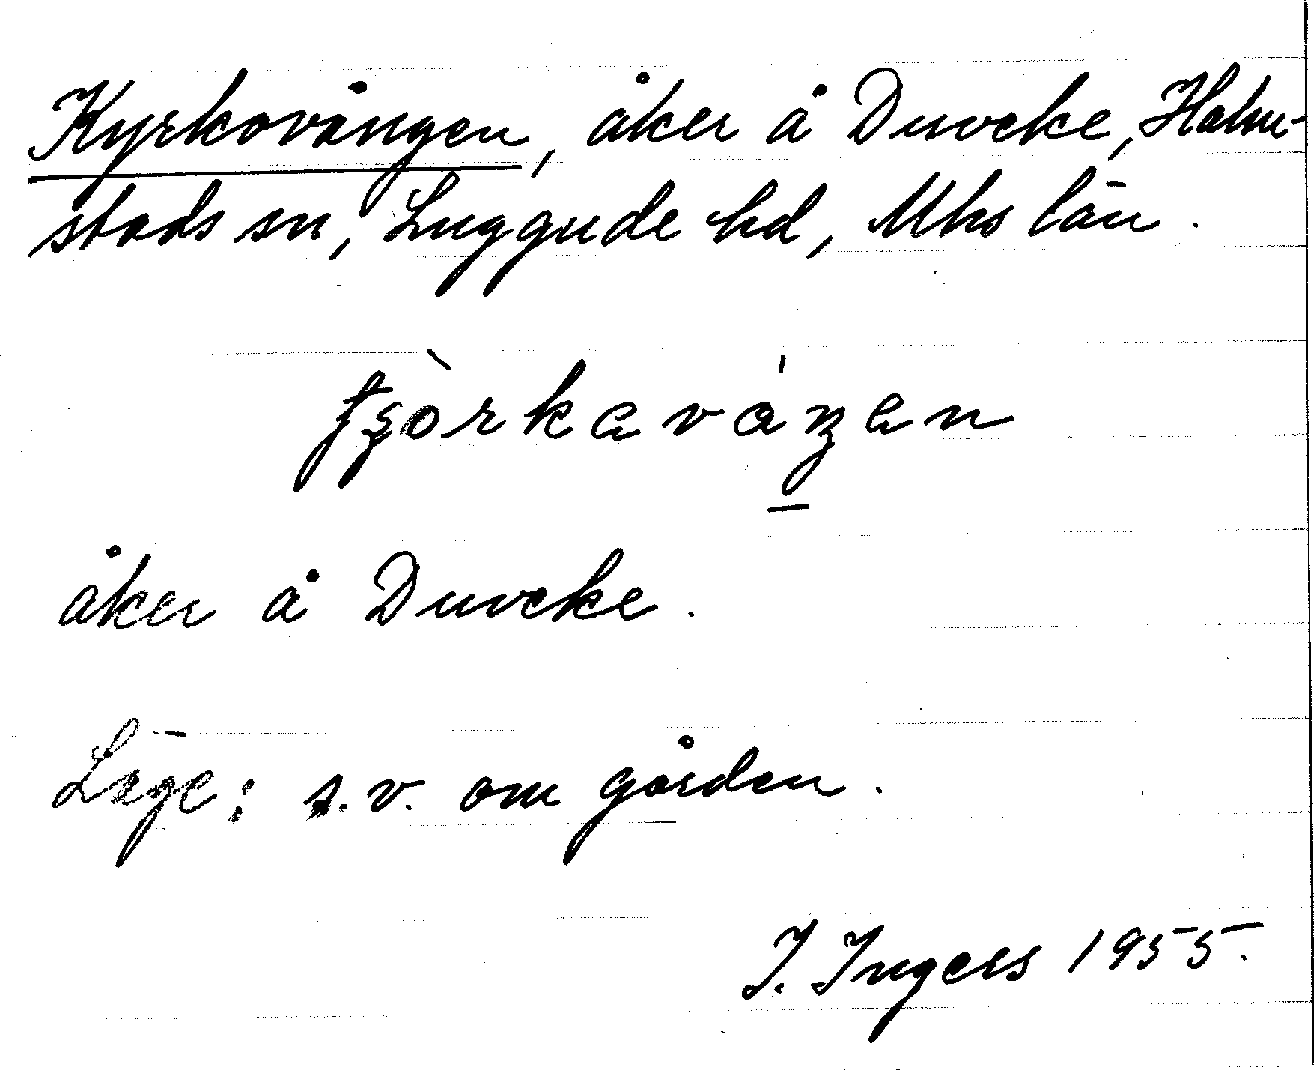 Kyrkovången, åker å Duveke, Halm-
stads sn, Luggude hd, Mhs län.
åker å Duveke.
Läge: s.v. om gården.
I. Ingers 1955.